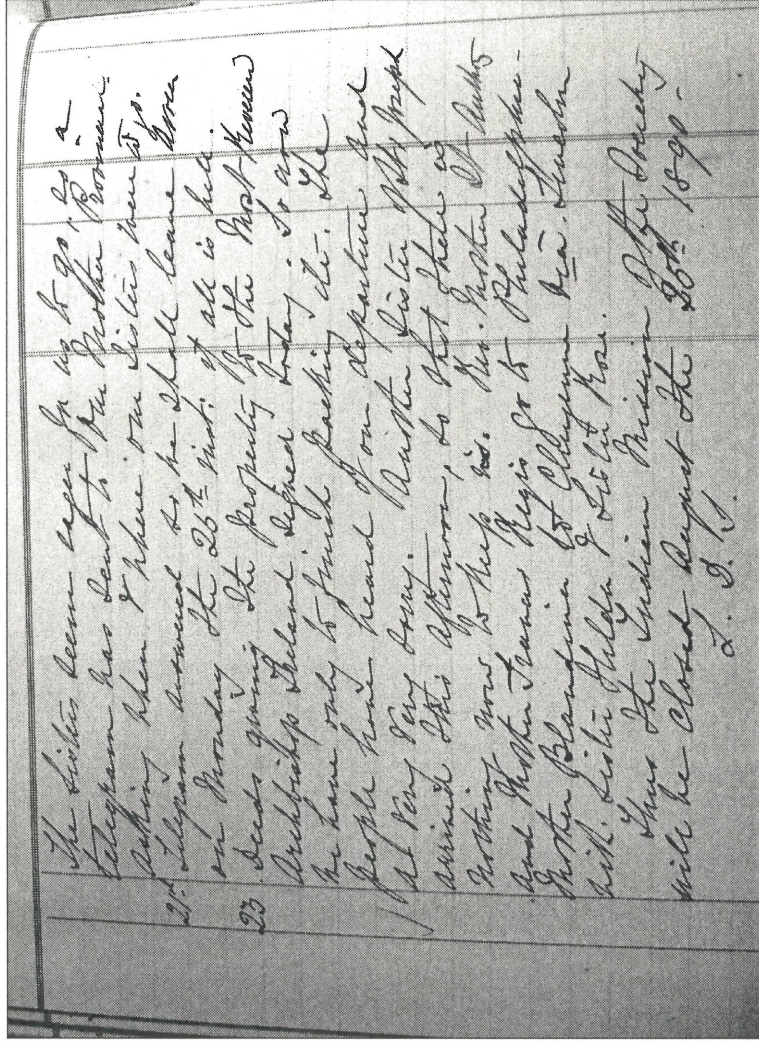 The Sisters seem eager for us to go, so a
telegram was sent to our Mother Provincial
asking when & where our Sisters were to go.
21st Telegram answered so we shall leave
on Monday the 25th inst: if all is well.
23 Deeds giving the property to the Most Reverend
Archbishop Ireland signed today. So now
we have only to finish packing etc. The
people have heard of our departure and
are very very sorry. Another Sister of St. Joseph
arrived this afternoon, so that there is
nothing now to keep us. Rev. Mother St
and Mother Francis Regis go to Philadelphia -
Mother Blandina to Cheyenne via Lincoln
with Sister Hilda & Sister Rose.
Thus the Indian Mission of the Society
will be closed August the 25th 1890 -
L. D. S.